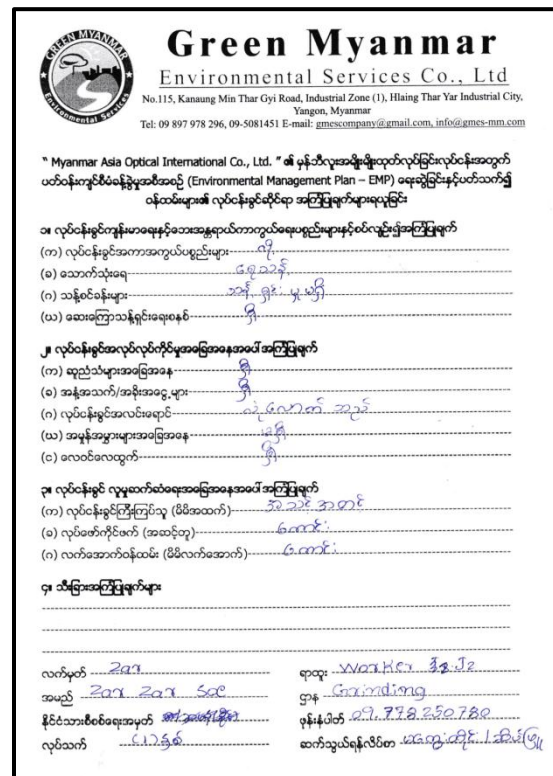 GREEN MYANMAR
Environmental Services
Green Myanmar
Environmental Services Co., Ltd
No.115, Kanaung Min Thar Gyi Road, Industrial Zone (1), Hlaing Thar Yar Industrial City,
Yangon, Myanmar
Tel: 09 897 978 296, 09-5081451 E-mail: gmescompany@gmail.com, info@gmes-mm.com
" Myanmar Asia Optical International Co., Ltd. " ၏ မှန်ဘီလူးအမျိုးမျိုးထုတ်လုပ်ခြင်းလုပ်ငန်းအတွက်
ပတ်ဝန်းကျင်စီမံခန့်ခွဲမှုအစီအစဉ် (Environmental Management Plan – EMP) ရေးဆွဲခြင်းနှင့်ပတ်သက်၍
ဝန်ထမ်းများ၏ လုပ်ငန်းခွင်ဆိုင်ရာ အကြံပြုချက်များရယူခြင်း
၁။ လုပ်ငန်းခွင်ကျန်းမာရေးနှင့်ဘေးအန္တရာယ်ကာကွယ်ရေးပစ္စည်းများနှင့်စပ်လျဉ်း၍အကြံပြုချက်
(က) လုပ်ငန်းခွင်အကာအကွယ်ပစ္စည်းများ
(ခ) သောက်သုံးရေ ရေသန့်
(ဂ) သန့်စင်ခန်းများ သန့်ရှင်းမှုမရှိ
(ဃ) ဆေးကြောသန့်ရှင်းရေးစနစ် ရှိ
၂။ လုပ်ငန်းခွင်အလုပ်လုပ်ကိုင်မှုအခြေအနေအပေါ်အကြံပြုချက်
(က) ဆူညံသံများအခြေအနေ ရှိ
(ခ) အနံ့အသက်/အခိုးအငွေ့များ ရှိ
(ဂ) လုပ်ငန်းခွင်အလင်းရောင် လုံလောက်သည်
(ဃ) အမှုန်အမွှားများအခြေအနေ မရှိ
(င) လေဝင်လေထွက် ရှိ
၃။ လုပ်ငန်းခွင် လူမှုဆက်ဆံရေးအခြေအနေအပေါ်အကြံပြုချက်
(က) လုပ်ငန်းခွင်ကြီးကြပ်သူ (မိမိအထက်) အသင့်အတင့်
(ခ) လုပ်ဖော်ကိုင်ဖက် (အဆင့်တူ) ကောင်း
(ဂ) လက်အောက်ဝန်ထမ်း (မိမိလက်အောက်) ကောင်း
၄။ သီးခြားအကြံပြုချက်များ
လက်မှတ် Zar ရာထူး Worker
အမည် Zar Zar Soe ဌာန Grinding
နိုင်ငံသားစိစစ်ရေးအမှတ် ဖုန်းနံပါတ် 09.778250780
လုပ်သက် (၁) နှစ် ဆက်သွယ်ရန်လိပ်စာ